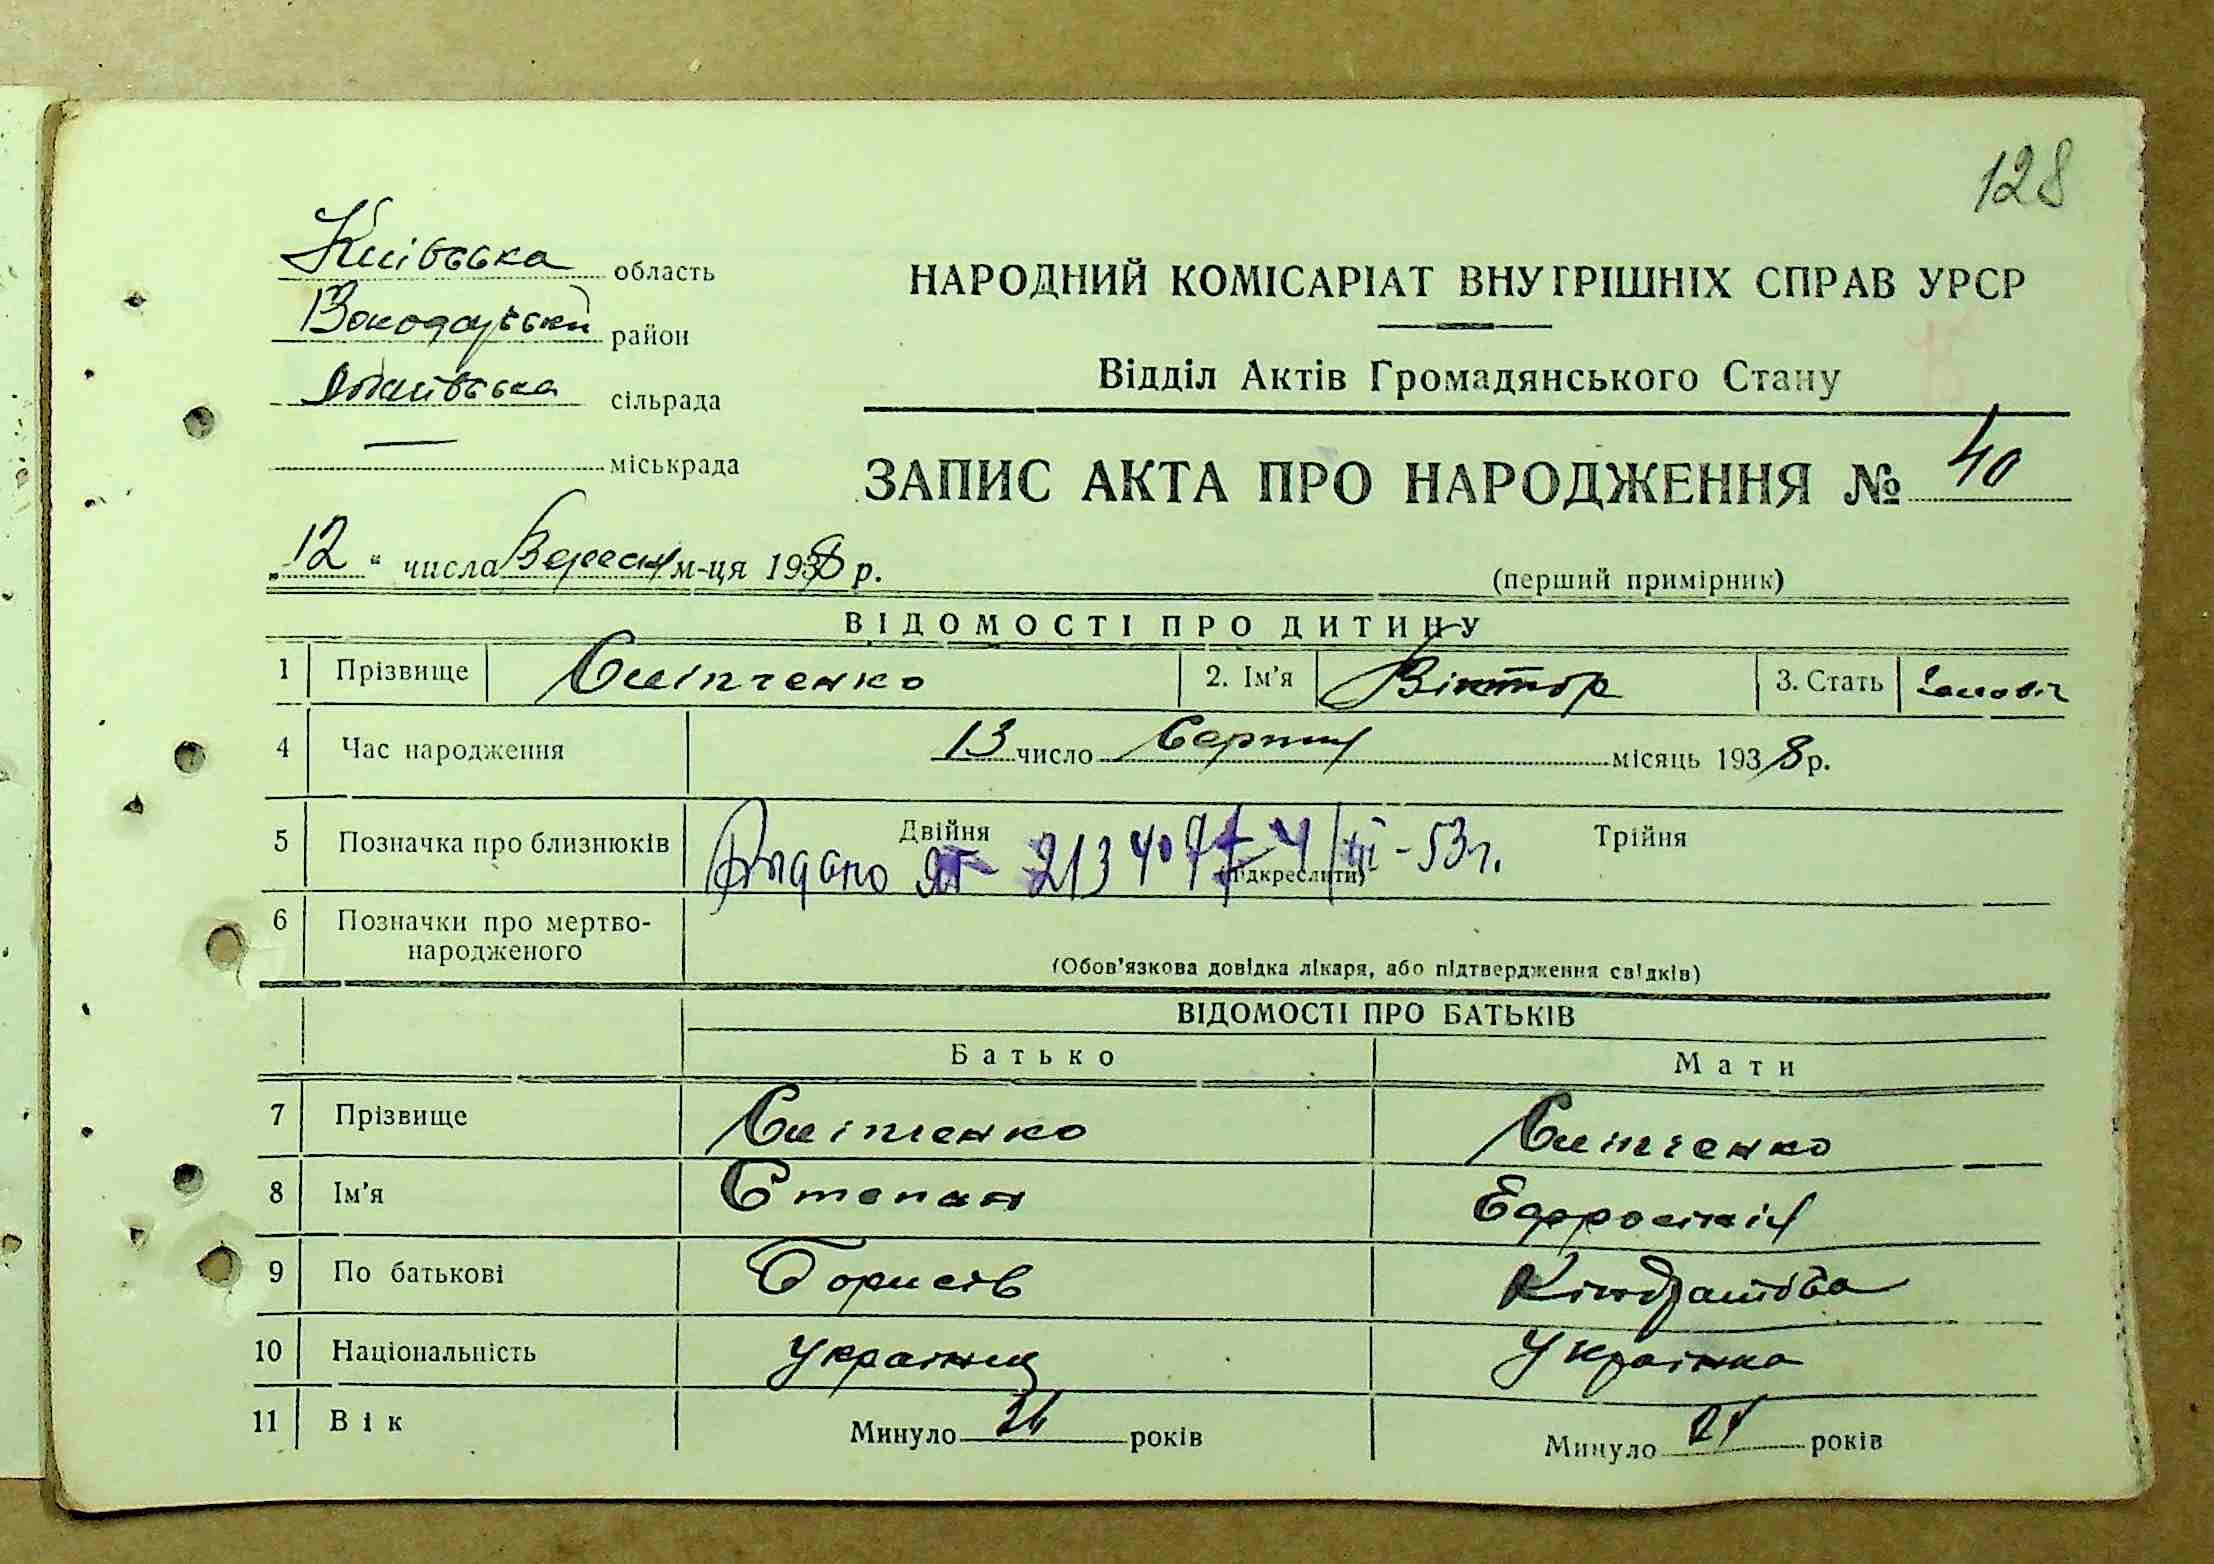 128
Київська область
Володарський район
сільрада
міськрада
НАРОДНИЙ КОМІСАРІАТ ВНУТРІШНІХ СПРАВ УРСР
Відділ Актів Громадянського Стану
ЗАПИС АКТА ПРО НАРОДЖЕННЯ № 40
„12“ числа Вересня м-ця 1938 р.
(перший примірник)
ВІДОМОСТІ ПРО ДИТИНУ
1 Прізвище Сліпченко 2. Ім'я Віктор 3. Стать
4 Час народження 13 число Серпня місяць 1938 р.
5 Позначка про близнюків Двійня Трійня
(підкреслити)
Видано ЯГ 213407 4/III-53 г.
6 Позначки про мертво-
народженого
(Обов'язкова довідка лікаря, або підтвердження свідків)
ВІДОМОСТІ ПРО БАТЬКІВ
Батько Мати
7 Прізвище Сліпченко Сліпченко
8 Ім'я Степан Ефросинія
9 По батькові Борисів Кіндратівна
10 Національність Українец Українка
11 Вік Минуло років Минуло 21 років